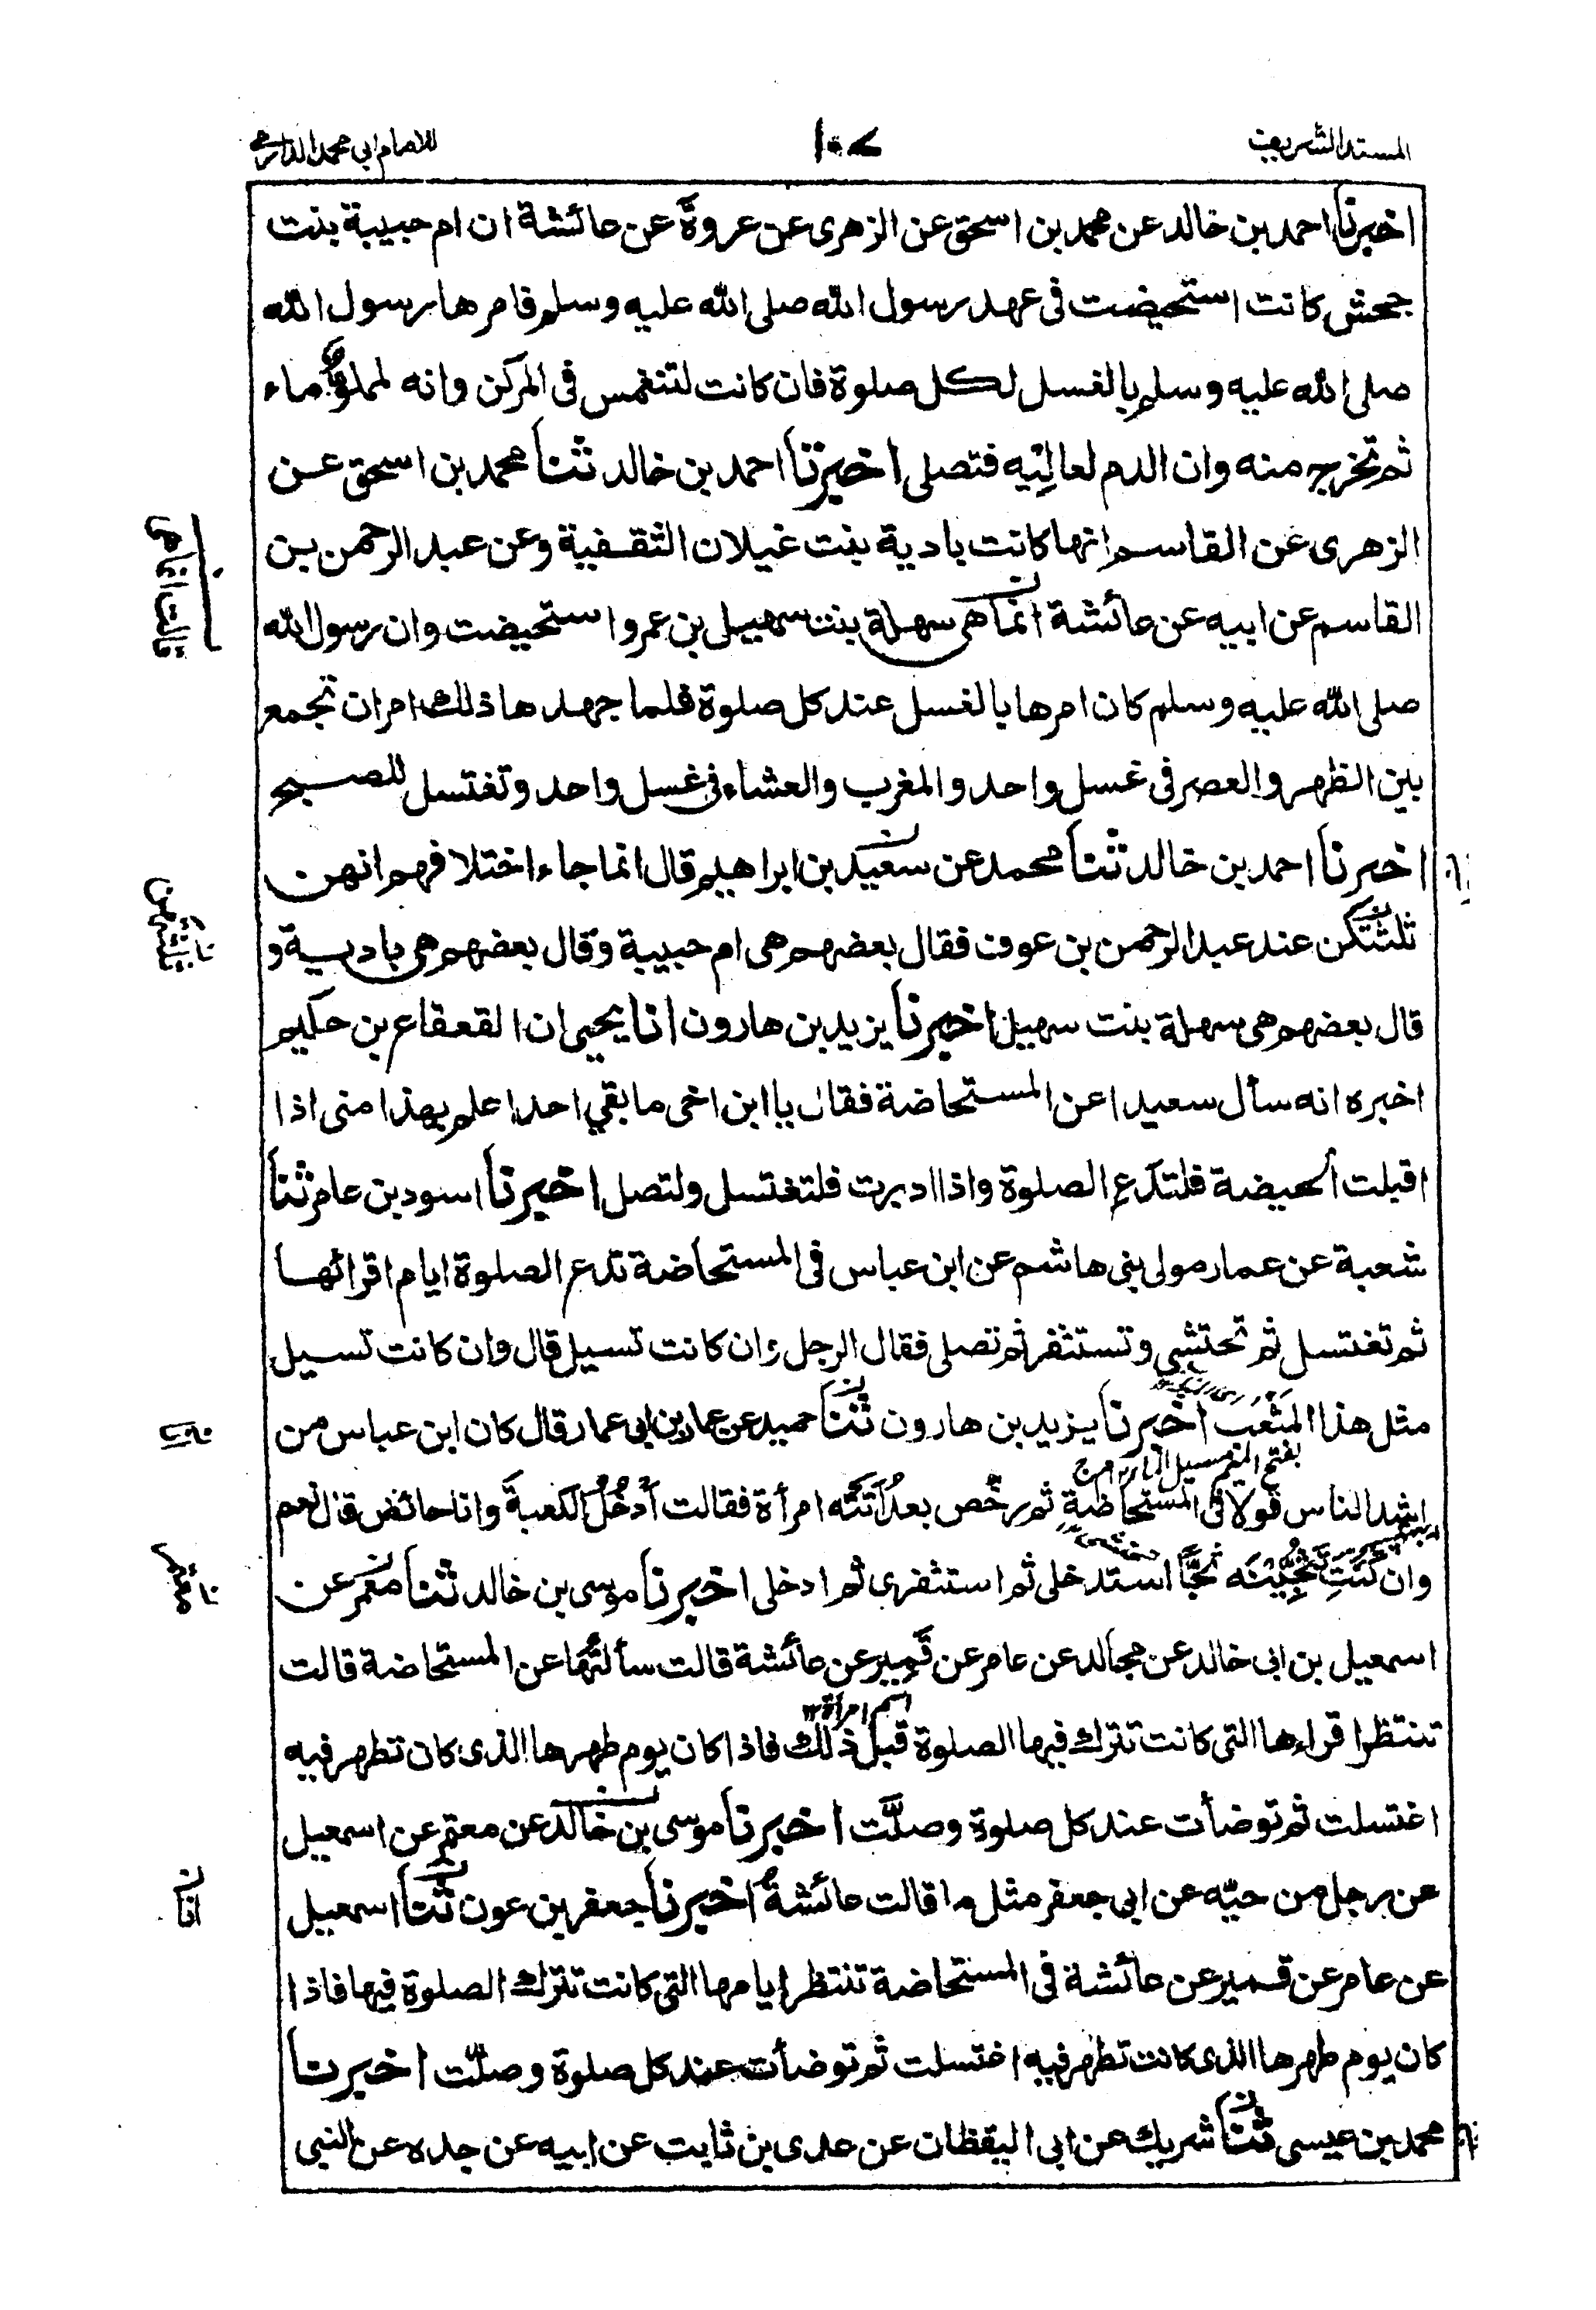 المسند الشريف
١٠٧
للامام ابي محمد الدارمي
اخبرنا احمد بن خالد عن محمد بن اسحق عن الزهرى عن عروة عن عائشة ان ام حبيبة بنت
جحش كانت استحيضت فى عهد رسول الله صلى الله عليه وسلم فامرها رسول الله
صلى الله عليه وسلم بالغسل لكل صلوة فان كانت لتنغمس فى المركن وانه لمملوٌ ماء
ثم تخرج منه وان الدم لعاليه فتصلى اخبرنا احمد بن خالد ثنا محمد بن اسحق عن
الزهرى عن القاسم انها كانت بادية بنت غيلان الثقفية وعن عبد الرحمن بن
القاسم عن ابيه عن عائشة انما هى سهلة بنت سهيل بن عمرو استحيضت وان رسول الله
صلى الله عليه وسلم كان امرها بالغسل عند كل صلوة فلما جهدها ذلك امر ان تجمع
بين الظهر والعصر فى غسل واحد والمغرب والعشاء فى غسل واحد وتغتسل للصبح
اخبرنا احمد بن خالد ثنا محمد عن سعيد بن ابراهيم قال انما جاء اختلافهم انهن
ثلثتكن عند عبد الرحمن بن عوف فقال بعضهم هى ام حبيبة وقال بعضهم هى بادية و
قال بعضهم هى سهلة بنت سهيل اخبرنا يزيد بن هارون انا يحيى ان القعقاع بن حكيم
اخبره انه سأل سعيدا عن المستحاضة فقال يا ابن اخى ما بقي احد اعلم بهذا منى اذا
اقبلت الحيضة فلتدع الصلوة واذا ادبرت فلتغتسل ولتصل اخبرنا اسود بن عامر ثنا
شعبة عن عمار مولى بنى هاشم عن ابن عباس فى المستحاضة تدع الصلوة ايام اقرائها
ثم تغتسل ثم تحتشى وتستثفر ثم تصلى فقال الرجل وان كانت تسيل قال وان كانت تسيل
مثل هذا المَثْعَب اخبرنا يزيد بن هارون ثنا حميد عن عمار بن ابى عمار قال كان ابن عباس من
بفتح الميم مسيل الماء
اشد الناس قولا فى المستحاضة ثم رخّص بعدُ اَتَتْه امرأة فقالت اَدْخُلُ الكعبةَ وانا حائض قال نعم
وان كنتِ تَثُجِّيْنَه ثَجًّا استدخلى ثم استثفرى ثم ادخلى اخبرنا موسى بن خالد ثنا معمر عن
اسمعيل بن ابى خالد عن مجالد عن عامر عن قَمِير عن عائشة قالت سألتُها عن المستحاضة قالت
اسم امرأة ١٢
تنتظر اقراءها التى كانت تترك فيها الصلوة قبل ذلك فاذا كان يوم طهرها الذى كان تطهر فيه
اغتسلت ثم توضأت عند كل صلوة وصلّت اخبرنا موسى بن خالد عن معتمر عن اسمعيل
عن رجل من حيّه عن ابى جعفر مثل ما قالت عائشة اخبرنا جعفر بن عون ثنا اسمعيل
انا
عن عامر عن قمير عن عائشة فى المستحاضة تنتظر ايامها التى كانت تترك الصلوة فيها فاذا
كان يوم طهرها الذى كانت تطهر فيه اغتسلت ثم توضأت عند كل صلوة وصلّت اخبرنا
محمد بن عيسى ثنا شريك عن ابى اليقظان عن عدى بن ثابت عن ابيه عن جده عن النبى